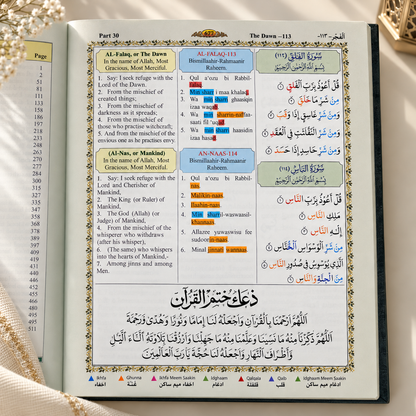 Page
Part 30
The Dawn –113
الفجر -١١٣
AL-Falaq, or The Dawn
In the name of Allah, Most
Gracious, Most Merciful.
1. Say: I seek refuge with the
Lord of the Dawn.
2. From the mischief of
created things;
3. From the mischief of
darkness as it spreads;
4. From the mischief of
those who practise witchcraft;
5. And from the mischief of the
envious one as he practises envy.
AL-FALAQ-113
Bismillaahir-Rahmaanir
Raheem.
1. Qul a'ozu bi Rabbil-
falaq.
2. Min sharri maa khalaq.
3. Wa min sharri ghaasiqin
izaa waqab.
4. Wa min sharrin-naffaa-
saati fil 'uqad.
5. Wa min sharri haasidin
izaa hasad.
سورة الفلق (١١٣)
بسم الله الرحمن الرحيم
قُلْ أَعُوذُ بِرَبِّ الْفَلَقِ
مِن شَرِّ مَا خَلَقَ
وَمِن شَرِّ غَاسِقٍ إِذَا وَقَبَ
وَمِن شَرِّ النَّفَّاثَاتِ فِي الْعُقَدِ
وَمِن شَرِّ حَاسِدٍ إِذَا حَسَدَ
(Al-Nas, or Mankind)
In the name of Allah, Most
Gracious, Most Merciful.
1. Say: I seek refuge with the
Lord and Cherisher of
Mankind,
2. The King (or Ruler) of
Mankind,
3. The God (Allah) (or
Judge) of Mankind,
4. From the mischief of the
whisperer who withdraws
(after his whisper),
5. (The same) who whispers
into the hearts of Mankind,-
6. Among jinns and among
Men.
AN-NAAS-114
Bismillaahir-Rahmaanir
Raheem.
1. Qul a'ozu bi Rabbil-
nas.
2. Malikin-naas.
3. Ilaahin-naas.
4. Min sharril-waswaasil-
khannaas.
5. Allazee yuwaswisu fee
sudoorin-naas.
6. Minal jinnati wannaas.
سورة الناس
بسم الله الرحمن الرحيم
قُلْ أَعُوذُ بِرَبِّ النَّاسِ
مَلِكِ النَّاسِ
إِلَهِ النَّاسِ
مِن شَرِّ الْوَسْوَاسِ الْخَنَّاسِ
الَّذِي يُوَسْوِسُ فِي صُدُورِ النَّاسِ
مِنَ الْجِنَّةِ وَالنَّاسِ
دعاء ختم القرآن
اللَّهُمَّ ارْحَمْنَا بِالْقُرْآنِ وَاجْعَلْهُ لَنَا إِمَامًا وَنُورًا وَهُدًى وَرَحْمَةً
اللَّهُمَّ ذَكِّرْنَا مِنْهُ مَا نَسِينَا وَعَلِّمْنَا مِنْهُ مَا جَهِلْنَا وَارْزُقْنَا تِلَاوَتَهُ آنَاءَ اللَّيْلِ
وَأَطْرَافَ النَّهَارِ وَاجْعَلْهُ لَنَا حُجَّةً يَا رَبَّ الْعَالَمِينَ
Ikhfa Ghunna Ikhfa Meem Saakin Idghaam Qalqala Qalb Idghaam Meem Saakin
اخفاء غنة اخفاء ميم ساكن ادغام قلقلة قلب ادغام ميم ساكن